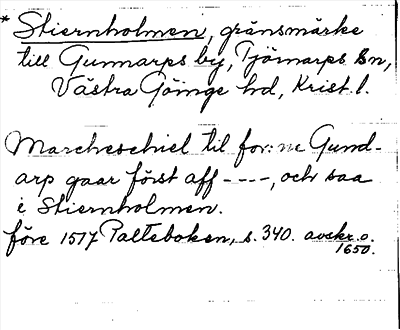 * Stiernholmen, gränsmärke
till Gunnarps by, Tjörnarps sn,
Västra Göinge hd, Krist. l.
Marcheschiel til for:ne Gund-
arp gaar först aff ----, och saa
i Stiernholmen.
före 1517 Palteboken, s. 340. avskr. o.
1650.